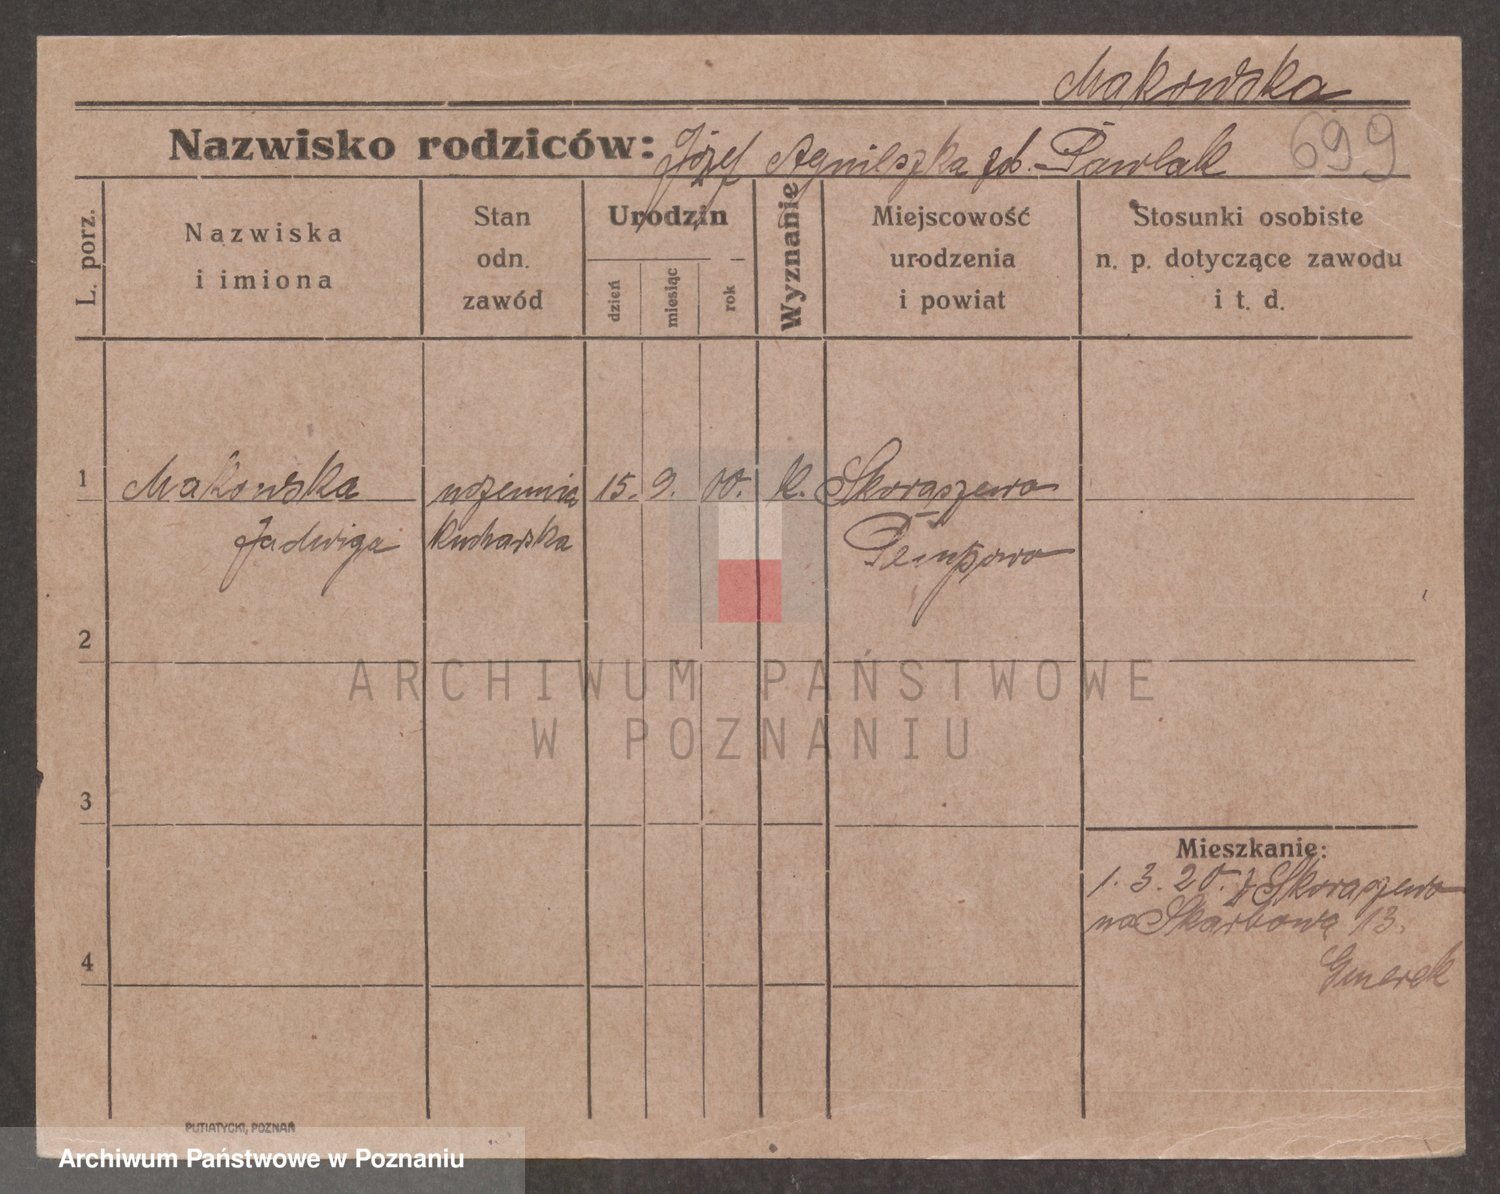 Makowska
Nazwisko rodziców: Józef Agnieszka zd. Pawlak 699
L. porz.
Nazwiska
i imiona
Stan
odn.
zawód
Urodzin
dzień
miesiąc
rok
Wyznanie
Miejscowość
urodzenia
i powiat
Stosunki osobiste
n. p. dotyczące zawodu
i t. d.
1 Makowska uczennica 15. 9. 00. K. Skoraszewo
Jadwiga kucharska
2
ARCHIWUM PAŃSTWOWE
W POZNANIU
3
Mieszkanie:
1. 3. 20. z Skoraszewo
na Skarbowa 13.
4
PUTIATYCKI, POZNAŃ
Archiwum Państwowe w Poznaniu